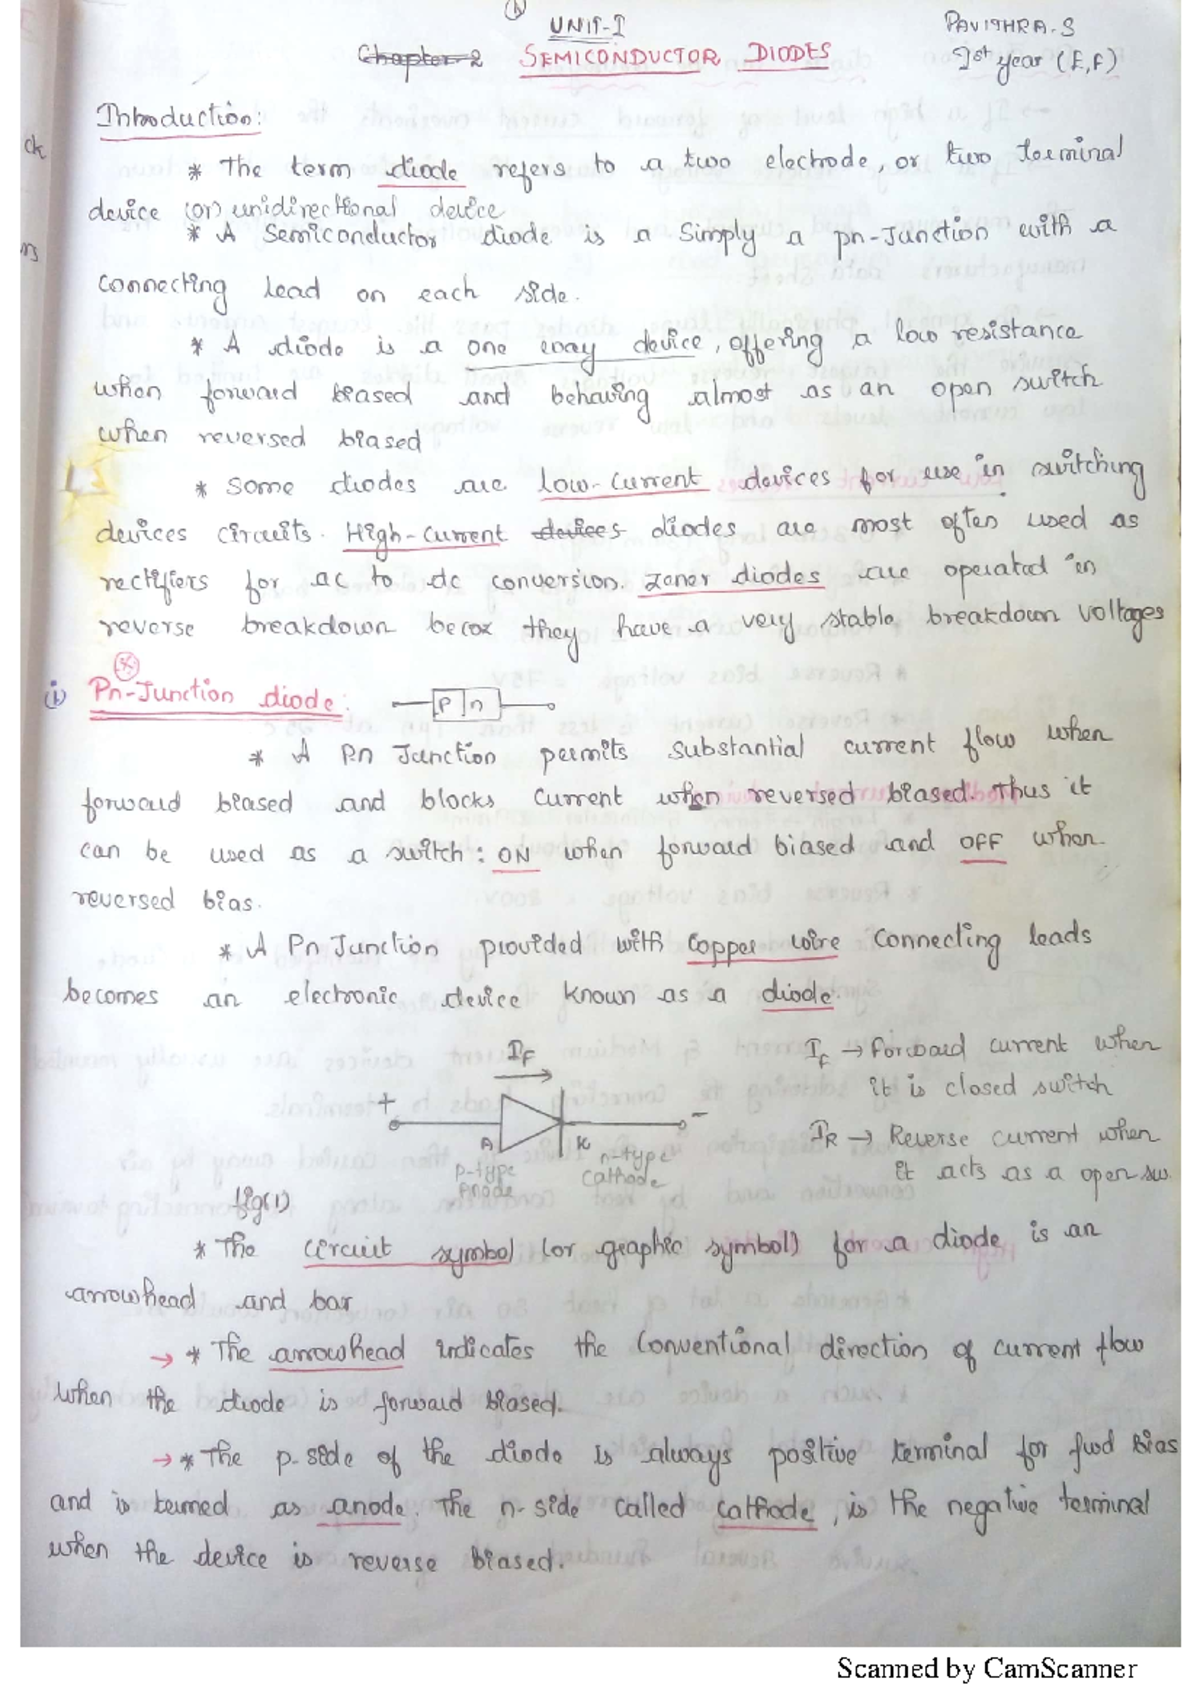 UNIT-I
PAVITHRA.S
Chapter-2 SEMICONDUCTOR DIODES
1st year (E,F)
Introduction:
* The term diode refers to a two electrode, or two terminal
device (or) unidirectional device
* A Semiconductor diode is a Simply a pn-Junction with a
connecting lead on each side.
* A diode is a one way device, offering a low resistance
when forward biased and behaving almost as an open switch
when reversed biased
* Some diodes are low-current devices for use in switching
devices circuits. High-current devices diodes are most often used as
rectifiers for ac to dc conversion. Zener diodes are operated in
reverse breakdown becoz they have a very stable breakdown voltages
i) Pn-Junction diode:
P n
* A Pn Junction permits substantial current flow when
forward biased and blocks current when reversed biased. Thus it
can be used as a switch: ON when forward biased and OFF when
reversed bias.
* A Pn Junction provided with copper wire connecting leads
becomes an electronic device known as a diode.
IF
IF → forward current when
it is closed switch
+ -
A K
p-type Anode
n-type Cathode
IR → Reverse current when
it acts as a open sw.
fig(1)
* The circuit symbol (or graphic symbol) for a diode is an
arrowhead and bar
→ * The arrowhead indicates the conventional direction of current flow
when the diode is forward biased.
→ * The p-side of the diode is always positive terminal for fwd bias
and is termed as anode. The n-side called cathode, is the negative terminal
when the device is reverse biased.
Scanned by CamScanner